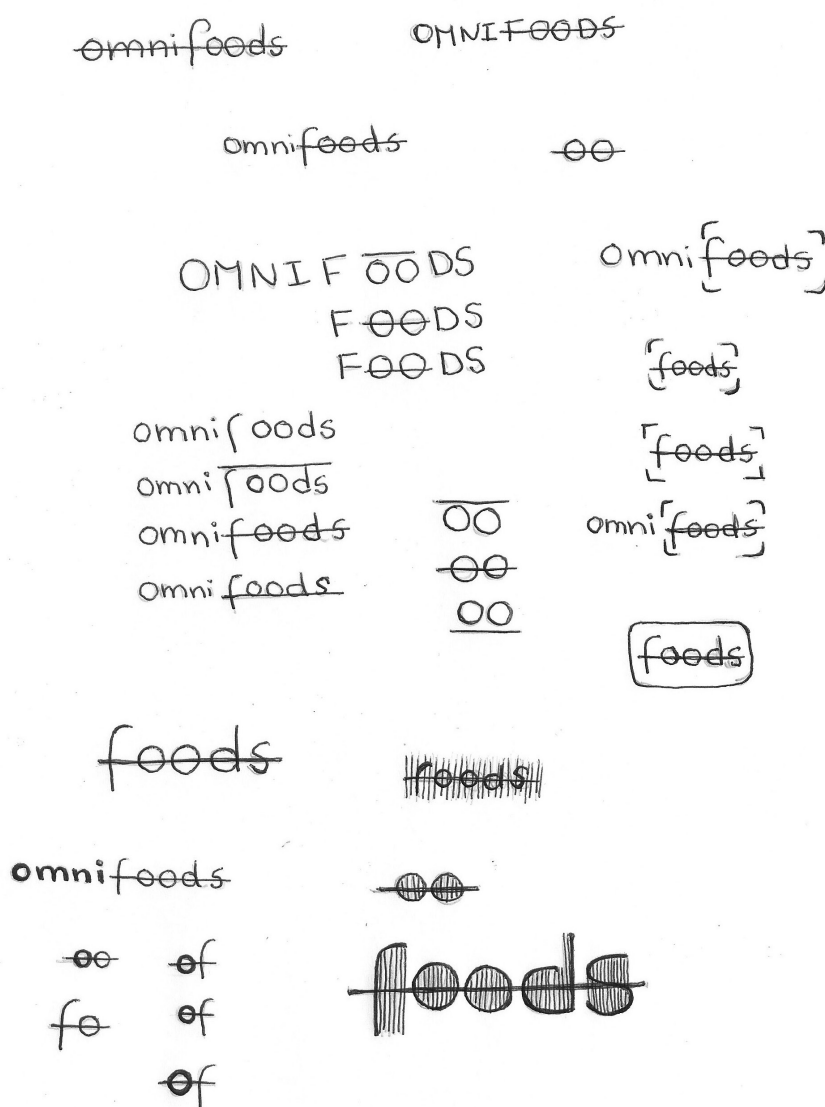 omnifoods
OMNIFOODS
omnifoods
oo
OMNIFOODS
FOODS
FOODS
omnifoods
foods
foods
omnifoods
foods
omnifoods
omnifoods
omnifoods
omnifoods
oo
oo
oo
foods
foods
omnifoods
oo
oo
of
fo
of
of
foods